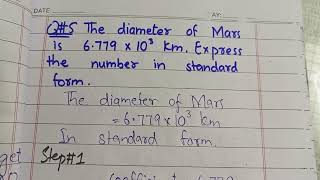 DATE
AY:
Q#5 The diameter of Mars
is 6.779 x 10³ km. Express
the number in standard
form.
The diameter of Mars
= 6.779 x 10³ km
In standard form.
get
Step#1
coefficient